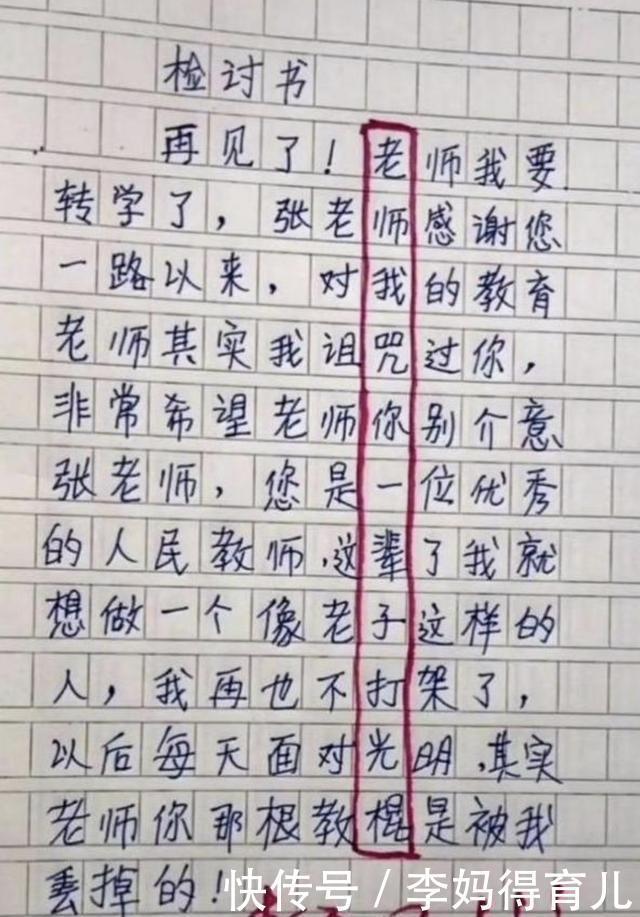 检讨书
再见了！老师我要
转学了，张老师感谢您
一路以来，对我的教育
老师其实我诅咒过你，
非常希望老师你别介意
张老师，您是一位优秀
的人民教师，这辈了我就
想做一个像老子这样的
人，我再也不打架了，
以后每天面对光明，其实
老师你那根教棍是被我
丢掉的！
快传号/李妈得育儿